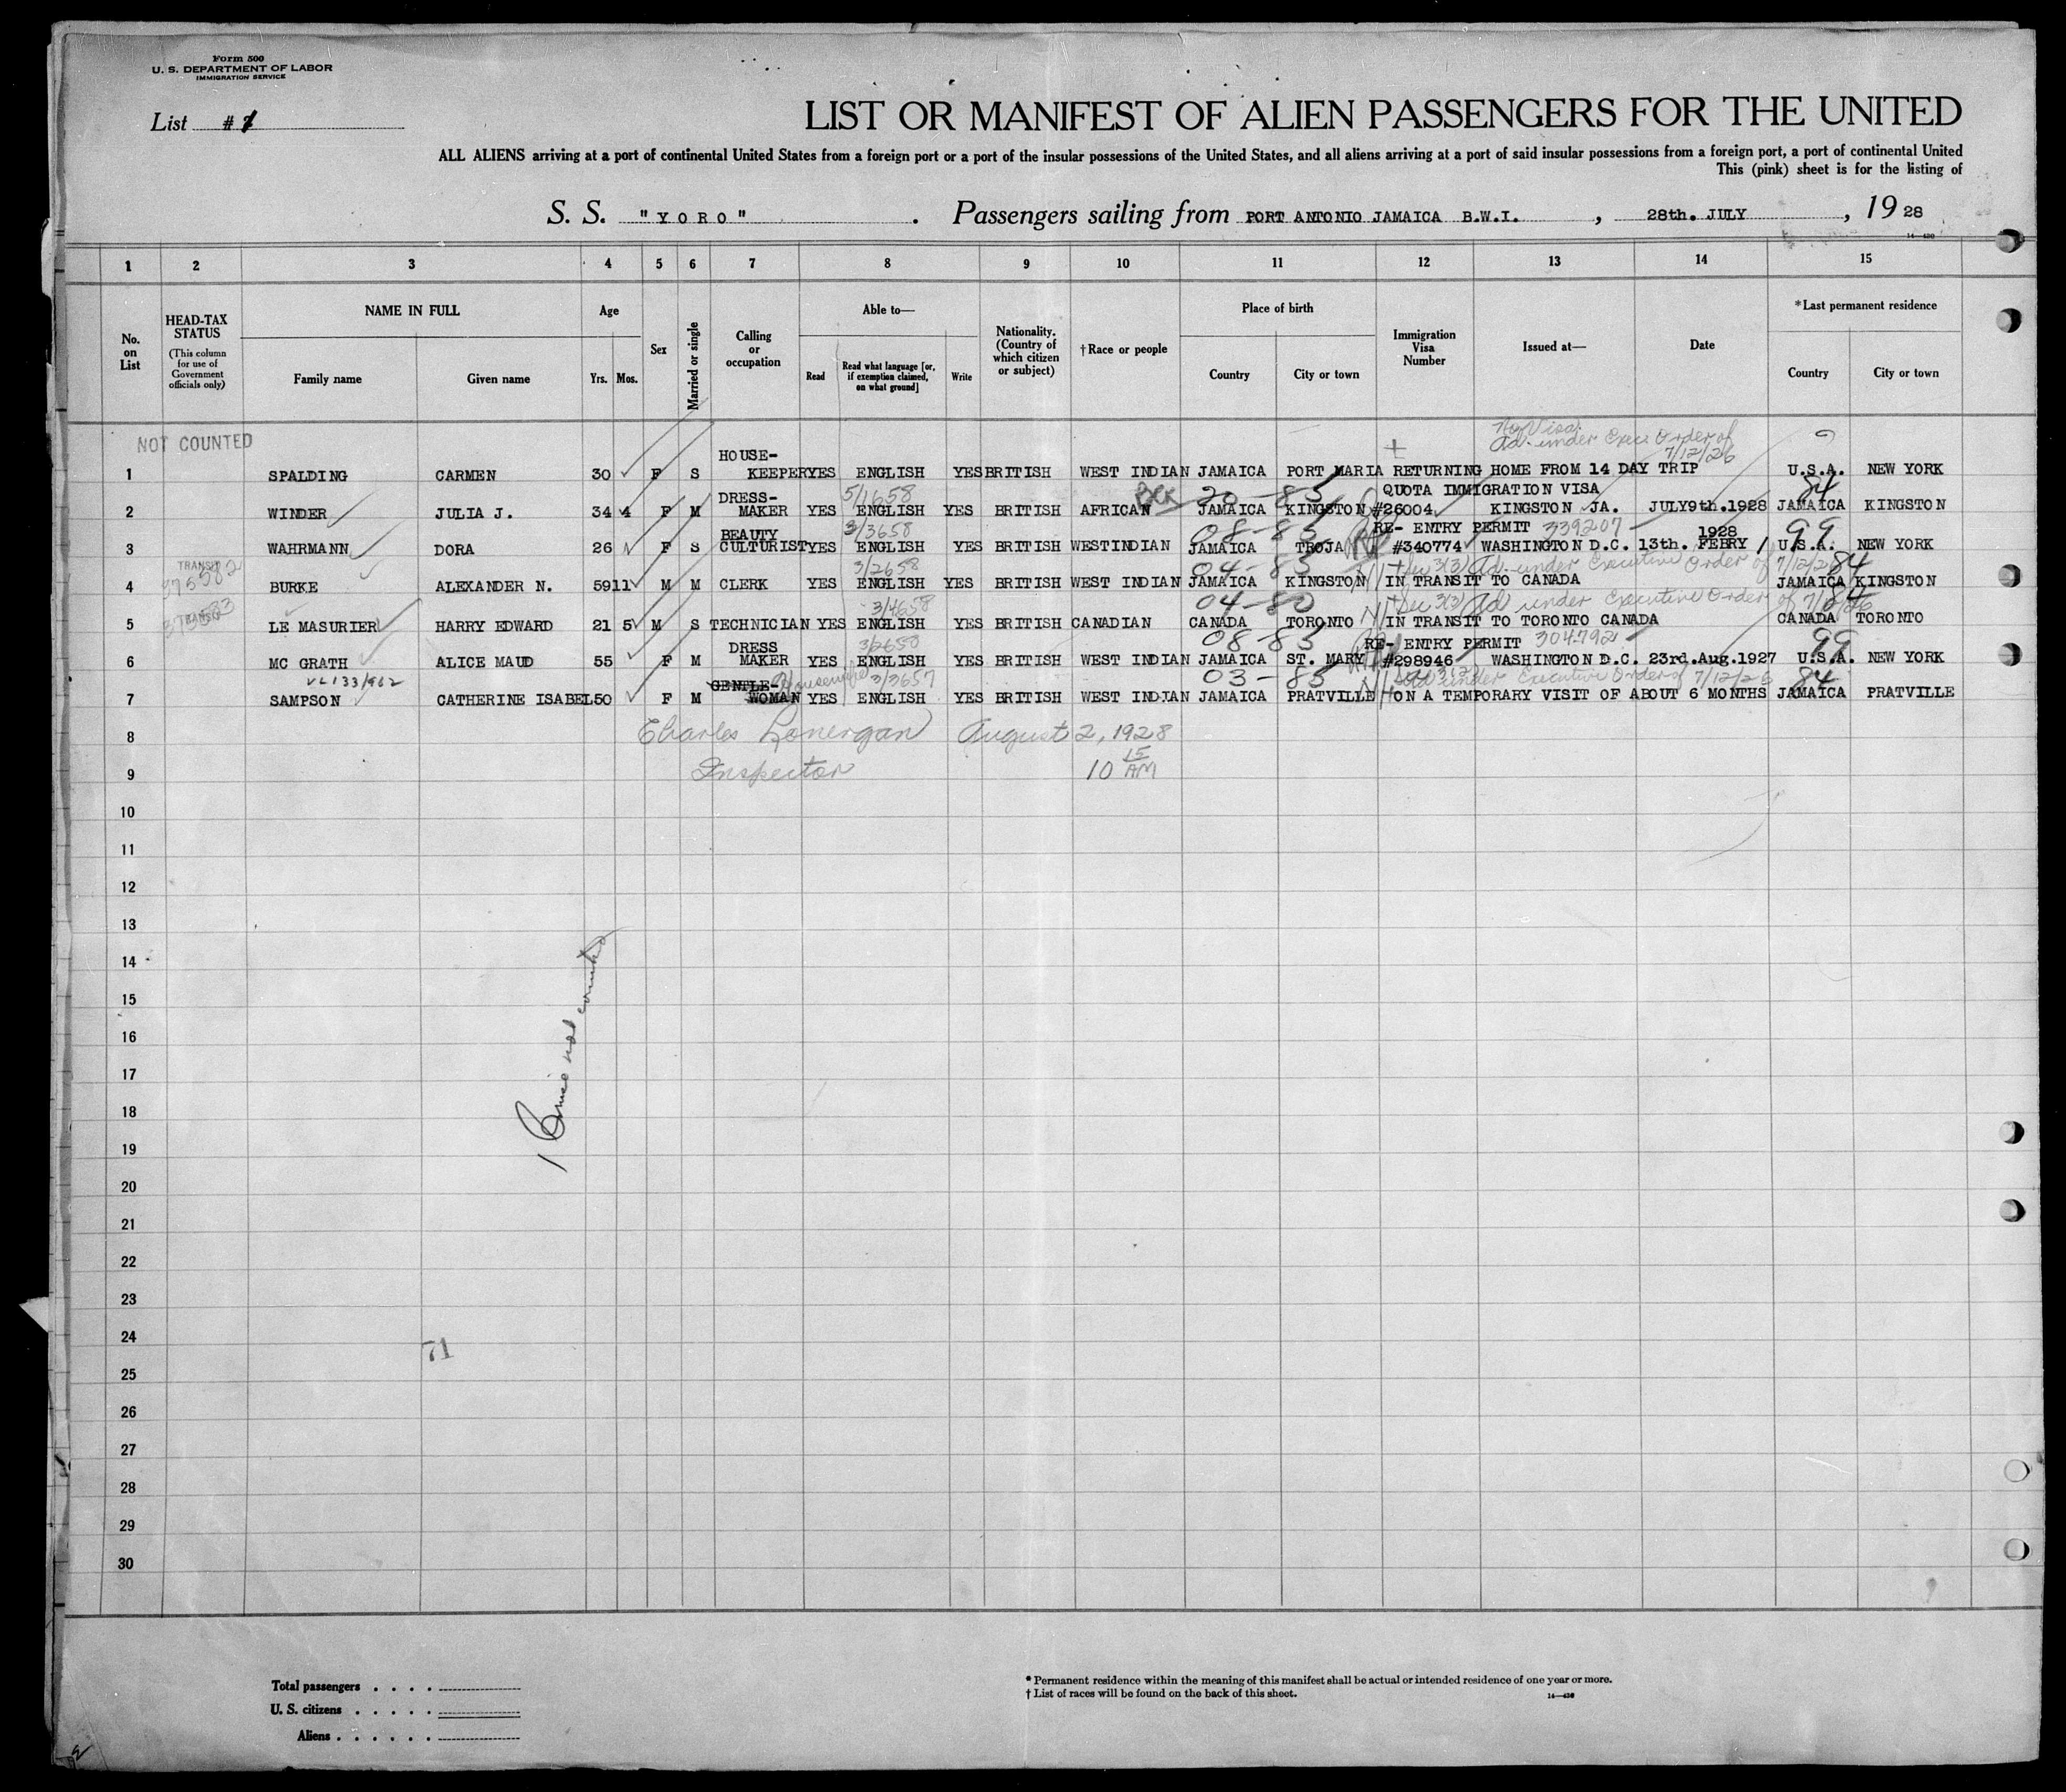 Form 500
U. S. DEPARTMENT OF LABOR
IMMIGRATION SERVICE
List #1
LIST OR MANIFEST OF ALIEN PASSENGERS FOR THE UNITED
ALL ALIENS arriving at a port of continental United States from a foreign port or a port of the insular possessions of the United States, and all aliens arriving at a port of said insular possessions from a foreign port, a port of continental United
This (pink) sheet is for the listing of
S. S. "YORO". Passengers sailing from PORT ANTONIO JAMAICA B.W.I., 28th. JULY, 1928
14—430
1 2 3 4 5 6 7 8 9 10 11 12 13 14 15
No. on List
HEAD-TAX STATUS (This column for use of Government officials only)
NAME IN FULL
Family name Given name
Age
Yrs. Mos.
Sex
Married or single
Calling or occupation
Able to—
Read
Read what language [or, if exemption claimed, on what ground]
Write
Nationality. (Country of which citizen or subject)
†Race or people
Place of birth
Country City or town
Immigration Visa Number
Issued at—
Date
*Last permanent residence
Country City or town
NOT COUNTED
No Visa.
Ad. under Exec. Order of 7/12/26
1 SPALDING CARMEN 30 F S HOUSE-KEEPER YES ENGLISH YES BRITISH WEST INDIAN JAMAICA PORT MARIA RETURNING HOME FROM 14 DAY TRIP U.S.A. NEW YORK
5/1658 20-83 QUOTA IMMIGRATION VISA 84
2 WINDER JULIA J. 34 4 F M DRESS-MAKER YES ENGLISH YES BRITISH AFRICAN JAMAICA KINGSTON #26004 KINGSTON JA. JULY 9th. 1928 JAMAICA KINGSTON
3/3658 08-83 RE-ENTRY PERMIT 339207 1928 99
3 WAHRMANN DORA 26 F S BEAUTY CULTURIST YES ENGLISH YES BRITISH WESTINDIAN JAMAICA TROJA #340774 WASHINGTON D.C. 13th. FEBRY U.S.A. NEW YORK
TRANSIT 375582 3/2658 04-83 Sec 3(3) Ad. under Executive Order of 7/12/26 84
4 BURKE ALEXANDER N. 59 11 M M CLERK YES ENGLISH YES BRITISH WEST INDIAN JAMAICA KINGSTON IN TRANSIT TO CANADA JAMAICA KINGSTON
TRANSIT 375583 3/4658 04-80 Sec 3(3) Ad under Executive Order of 7/12/26 84
5 LE MASURIER HARRY EDWARD 21 5 M S TECHNICIAN YES ENGLISH YES BRITISH CANADIAN CANADA TORONTO IN TRANSIT TO TORONTO CANADA CANADA TORONTO
3/2658 08-83 RE-ENTRY PERMIT 304792 99
6 MC GRATH ALICE MAUD 55 F M DRESS MAKER YES ENGLISH YES BRITISH WEST INDIAN JAMAICA ST. MARY #298946 WASHINGTON D.C. 23rd. Aug. 1927 U.S.A. NEW YORK
Housewife 3/3657 03-83 under Executive Order of 7/12/26 84
7 SAMPSON CATHERINE ISABEL 50 F M GENTLE-WOMAN YES ENGLISH YES BRITISH WEST INDIAN JAMAICA PRATVILLE ON A TEMPORARY VISIT OF ABOUT 6 MONTHS JAMAICA PRATVILLE
8 Charles Lonergan August 2, 1928
9 Inspector 10 15 AM
10
11
12
13
14
15
16
17
18
19
20
21
22
23
24
25
26
27
28
29
30
1 Cruise not counted
71
Total passengers
U. S. citizens
Aliens
* Permanent residence within the meaning of this manifest shall be actual or intended residence of one year or more.
† List of races will be found on the back of this sheet.
14—430